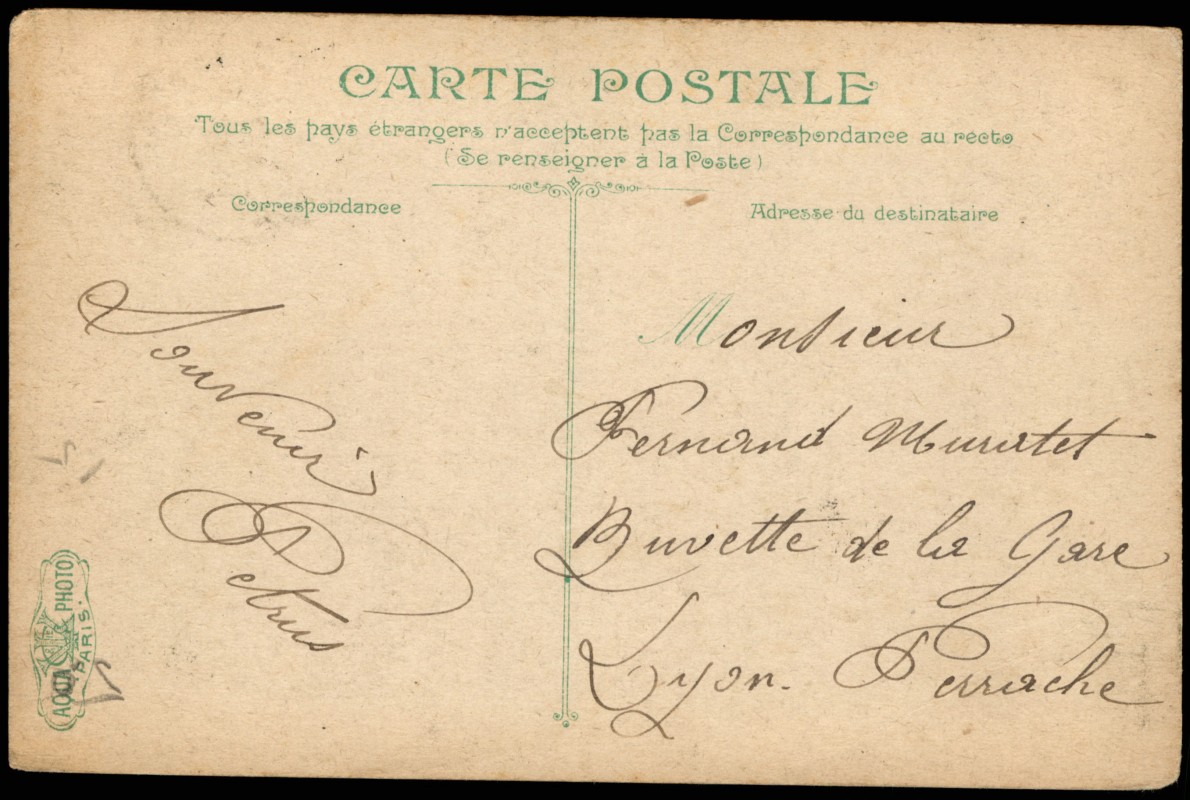 CARTE POSTALE
Tous les pays étrangers n'acceptent pas la Correspondance au recto
(Se renseigner à la Poste)
Correspondance
Adresse du destinataire
Souvenir
Petrus
Monsieur
Fernand Muratet
Buvette de la Gare
Lyon. Perrache
AQUA PHOTO
PARIS.